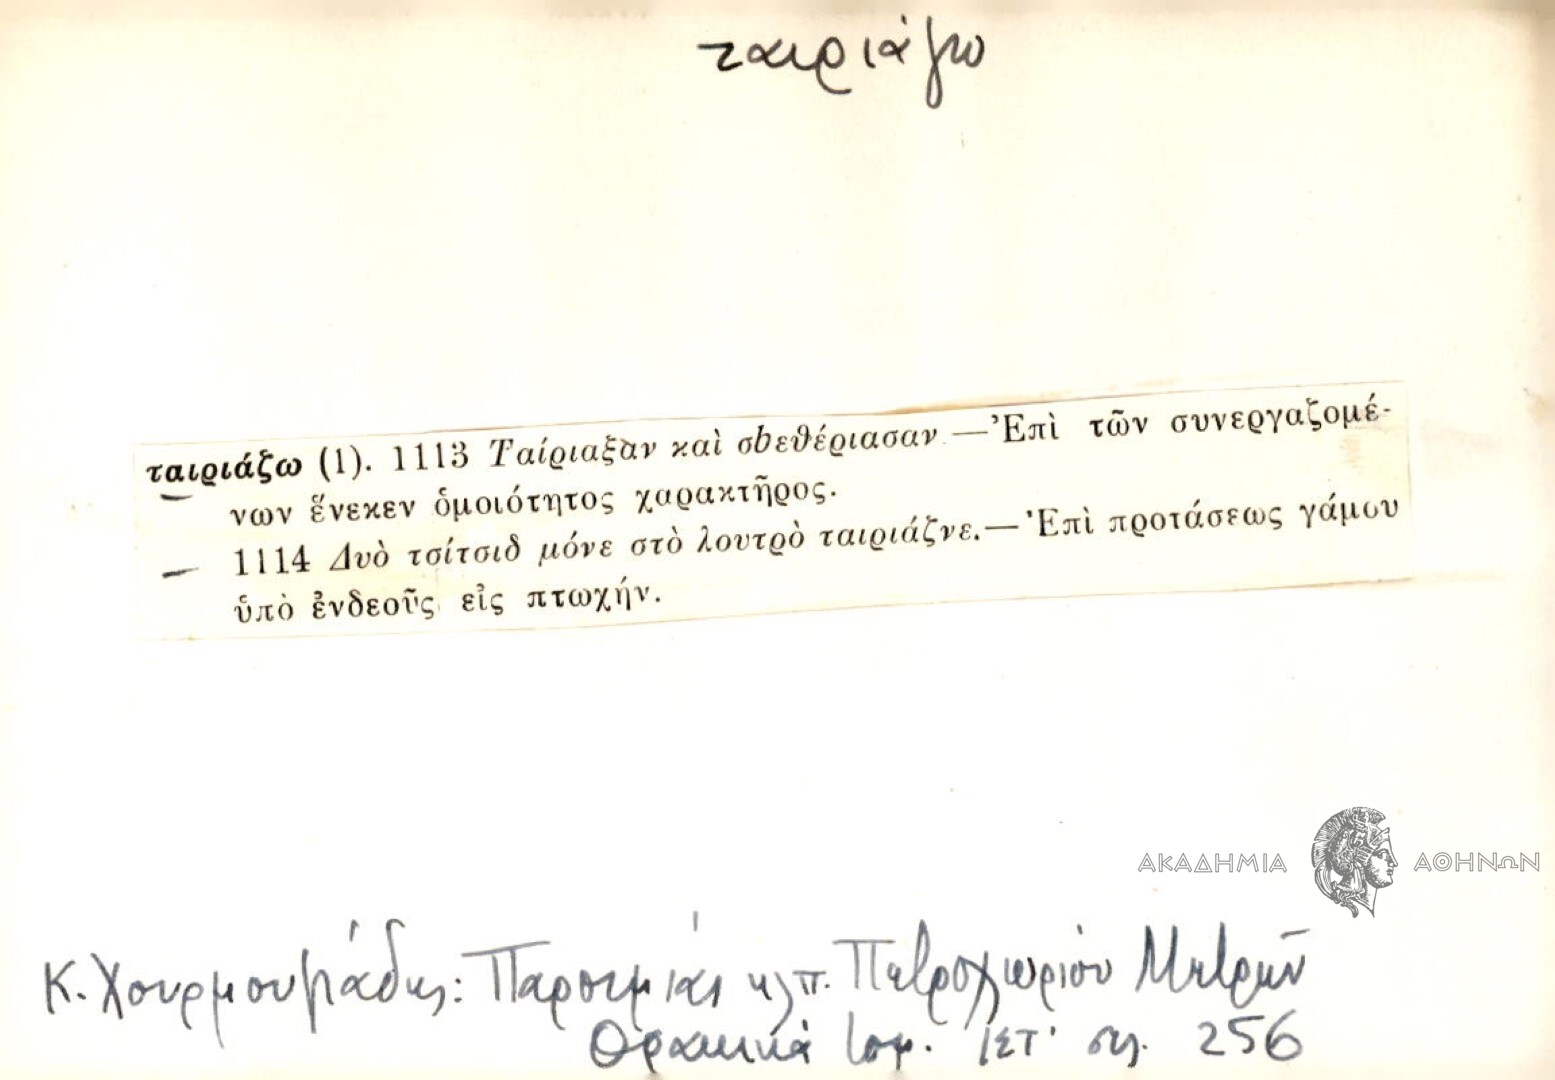 ταιριάζω
ταιριάζω (1). 1113 Ταίριαξαν καὶ σbεθέριασαν —Ἐπὶ τῶν συνεργαζομέ-
νων ἕνεκεν ὁμοιότητος χαρακτῆρος.
1114 Δυὸ τσίτσιδ μόνε στὸ λουτρὸ ταιριάζνε.—Ἐπὶ προτάσεως γάμου
ὑπὸ ἐνδεοῦς εἰς πτωχήν.
ΑΚΑΔΗΜΙΑ ΑΘΗΝΩΝ
Κ. Χουρμουζιάδης: Παροιμίαι κλπ. Πετροχωρίου Μετρῶν
Θρακικά τομ. ΙΣΤ' σελ. 256